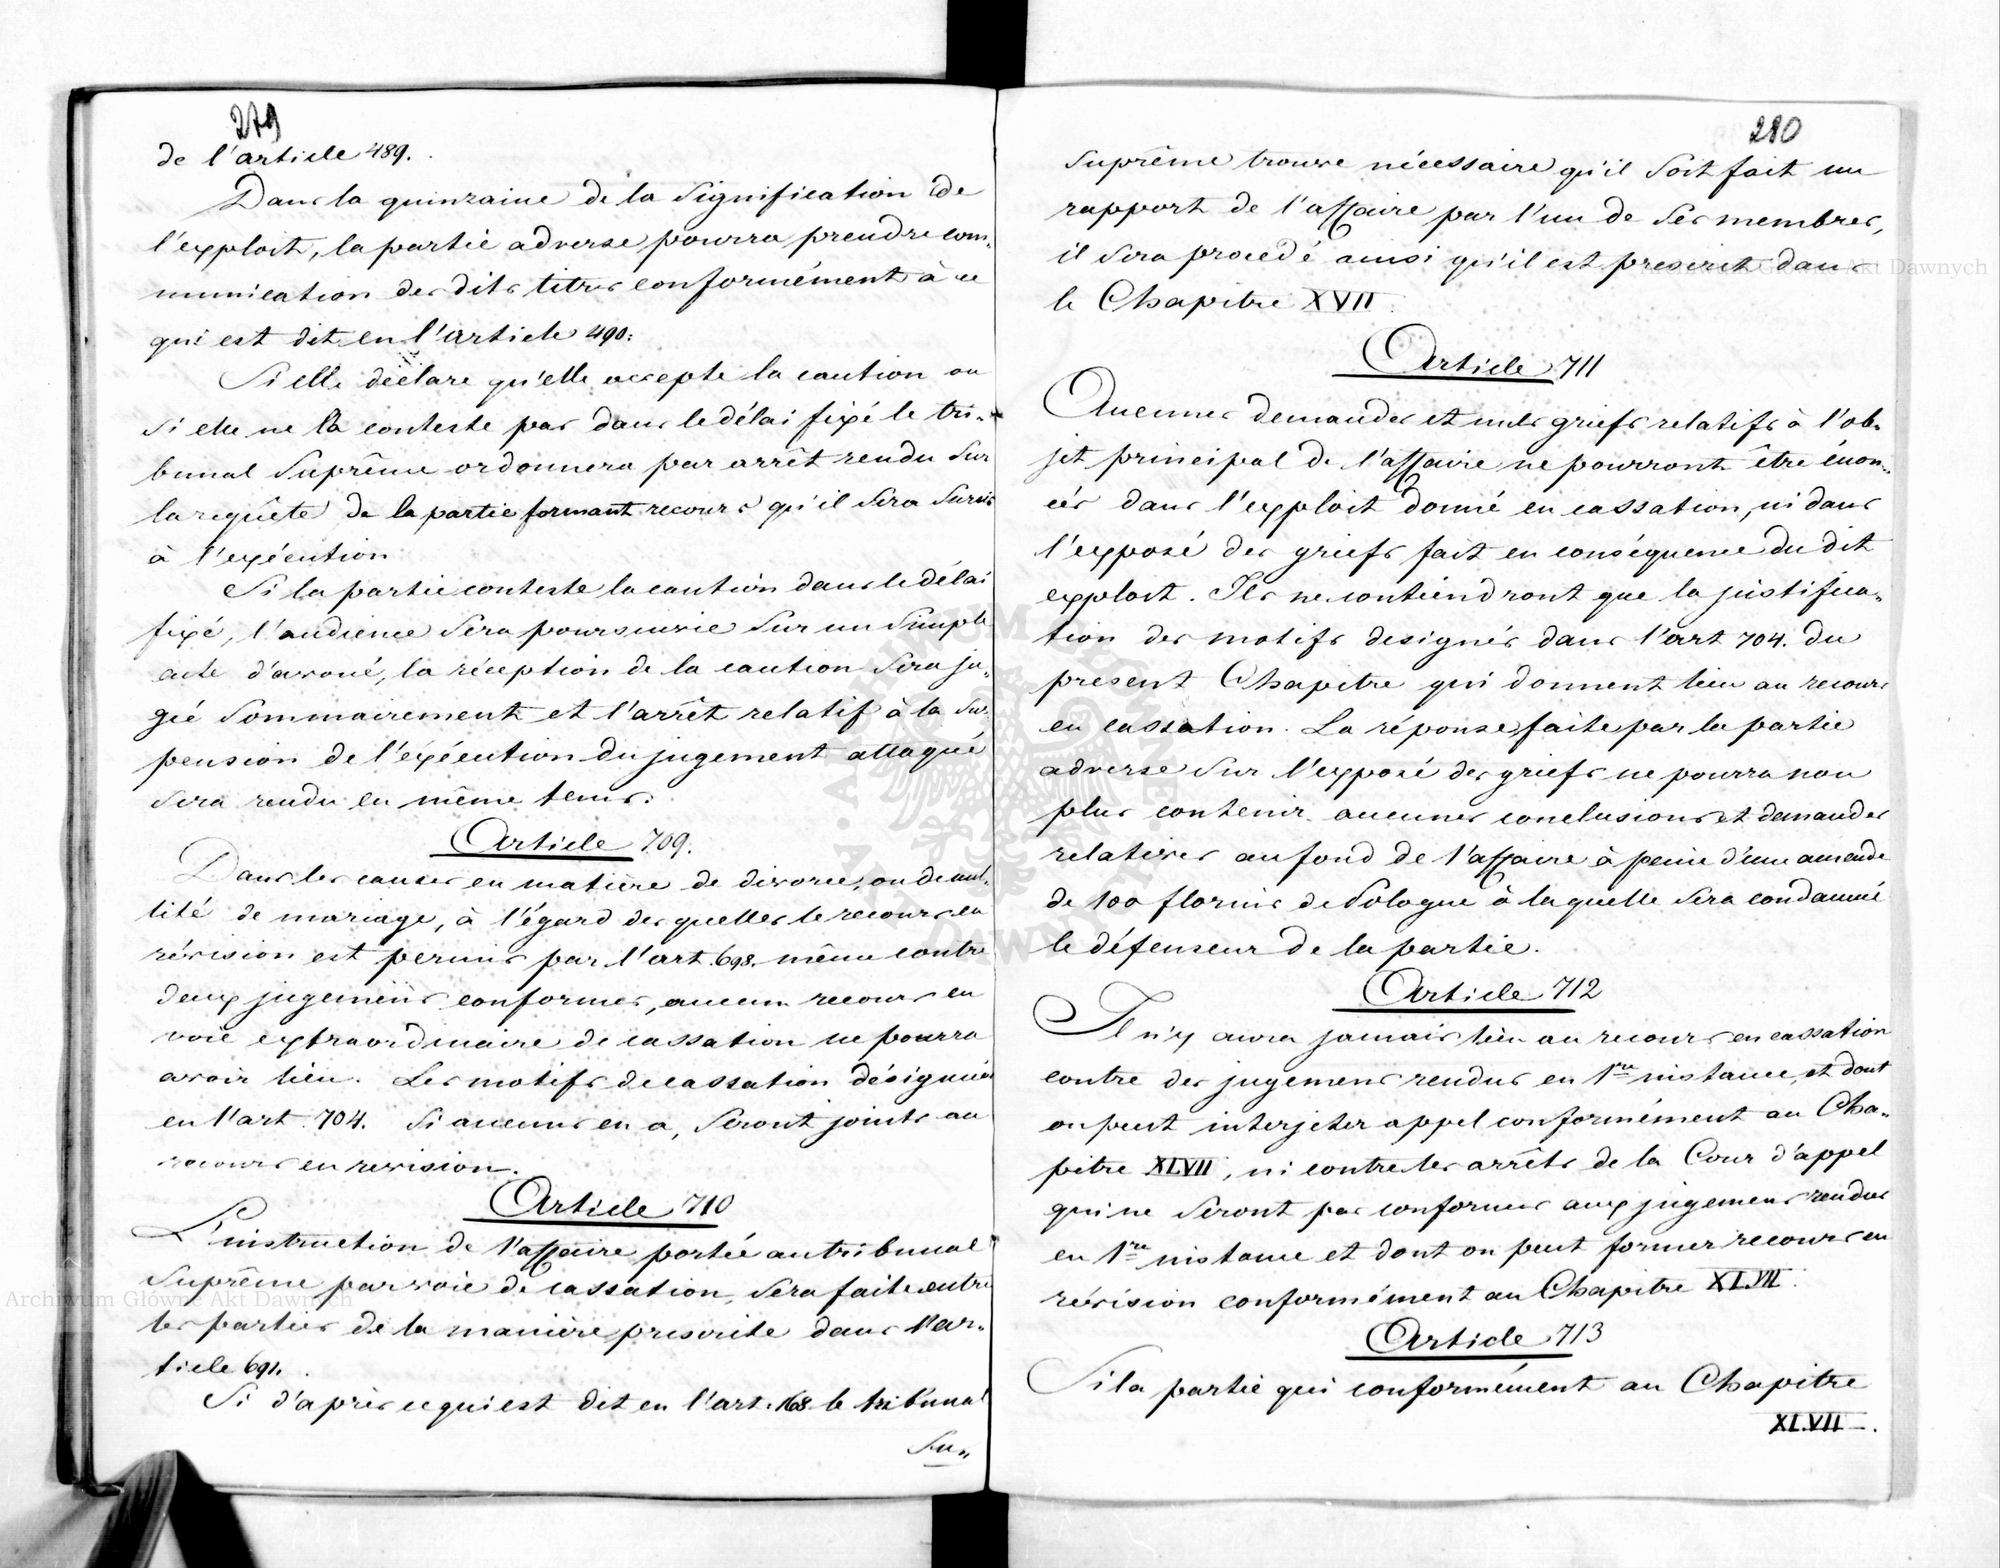 279
de l'article 489.
Dans la quinzaine de la signification de
l'exploit, la partie adverse pourra prendre com„
munication des dits titres conformément à ce
qui est dit en l'article 490.
Si elle déclare qu'elle accepte la caution ou
si elle ne la conteste pas dans le délai fixé le tri„
bunal Suprême ordonnera par arrêt rendu sur
la requête de la partie formant recours qu'il sera sursis
à l'exécution
Si la partie conteste la caution dans le délai
fixé, l'audience sera poursuivie sur un simple
acte d'avoué, la réception de la caution sera ju„
gée sommairement et l'arrêt relatif à la sus„
pension de l'exécution du jugement attaqué
sera rendu en même tems.
Article 709.
Dans les causes en matière de divorce, ou de nul„
lité de mariage, à l'égard des quelles le recours en
révision est permis par l'art. 698. même contre
deux jugemens conformes, aucun recours en
voie extraordinaire de cassation ne pourra
avoir lieu. Les motifs de cassation désignés
en l'art. 704. si aucuns en a, seront joints au
recours en revision.
Article 710
L'instruction de l'affaire portée au tribunal
Suprême par voie de cassation, sera faite entre
les parties de la manière prescrite dans l'ar„
ticle 691.
Si d'après ce qui est dit en l'art. 168 le tribunal
Su„
280
Suprême trouve nécessaire qu'il soit fait un
rapport de l'affaire par l'un de ses membres,
il sera procédé ainsi qu'il est prescrit dans
le Chapitre XVII.
Article 711
Aucunes demandes et nuls griefs relatifs à l'ob„
jet principal de l'affaire ne pourront être énon„
cés dans l'exploit donné en cassation, ni dans
l'exposé des griefs fait en conséquence du dit
exploit. Ils ne contiendront que la justifica„
tion des motifs designés dans l'art 704. du
present Chapitre qui donnent lieu au recours
en cassation. La réponse faite par la partie
adverse sur l'exposé des griefs ne pourra non
plus contenir aucunes conclusions et demandes
relatives au fond de l'affaire à peine d'une amende
de 100 florins de Pologne à laquelle sera condamné
le défenseur de la partie.
Article 712
Il n'y aura jamais lieu au recours en cassation
contre des jugemens rendus en 1re instance, et dont
on peut interjeter appel conformément au Cha„
pitre XLVII, ni contre les arrêts de la Cour d'appel
qui ne seront pas conformes aux jugemens rendus
en 1re instance et dont on peut former recours en
révision conformément au Chapitre XLVII.
Article 713
Si la partie qui conformément au Chapitre
XLVII.
Archiwum Główne Akt Dawnych